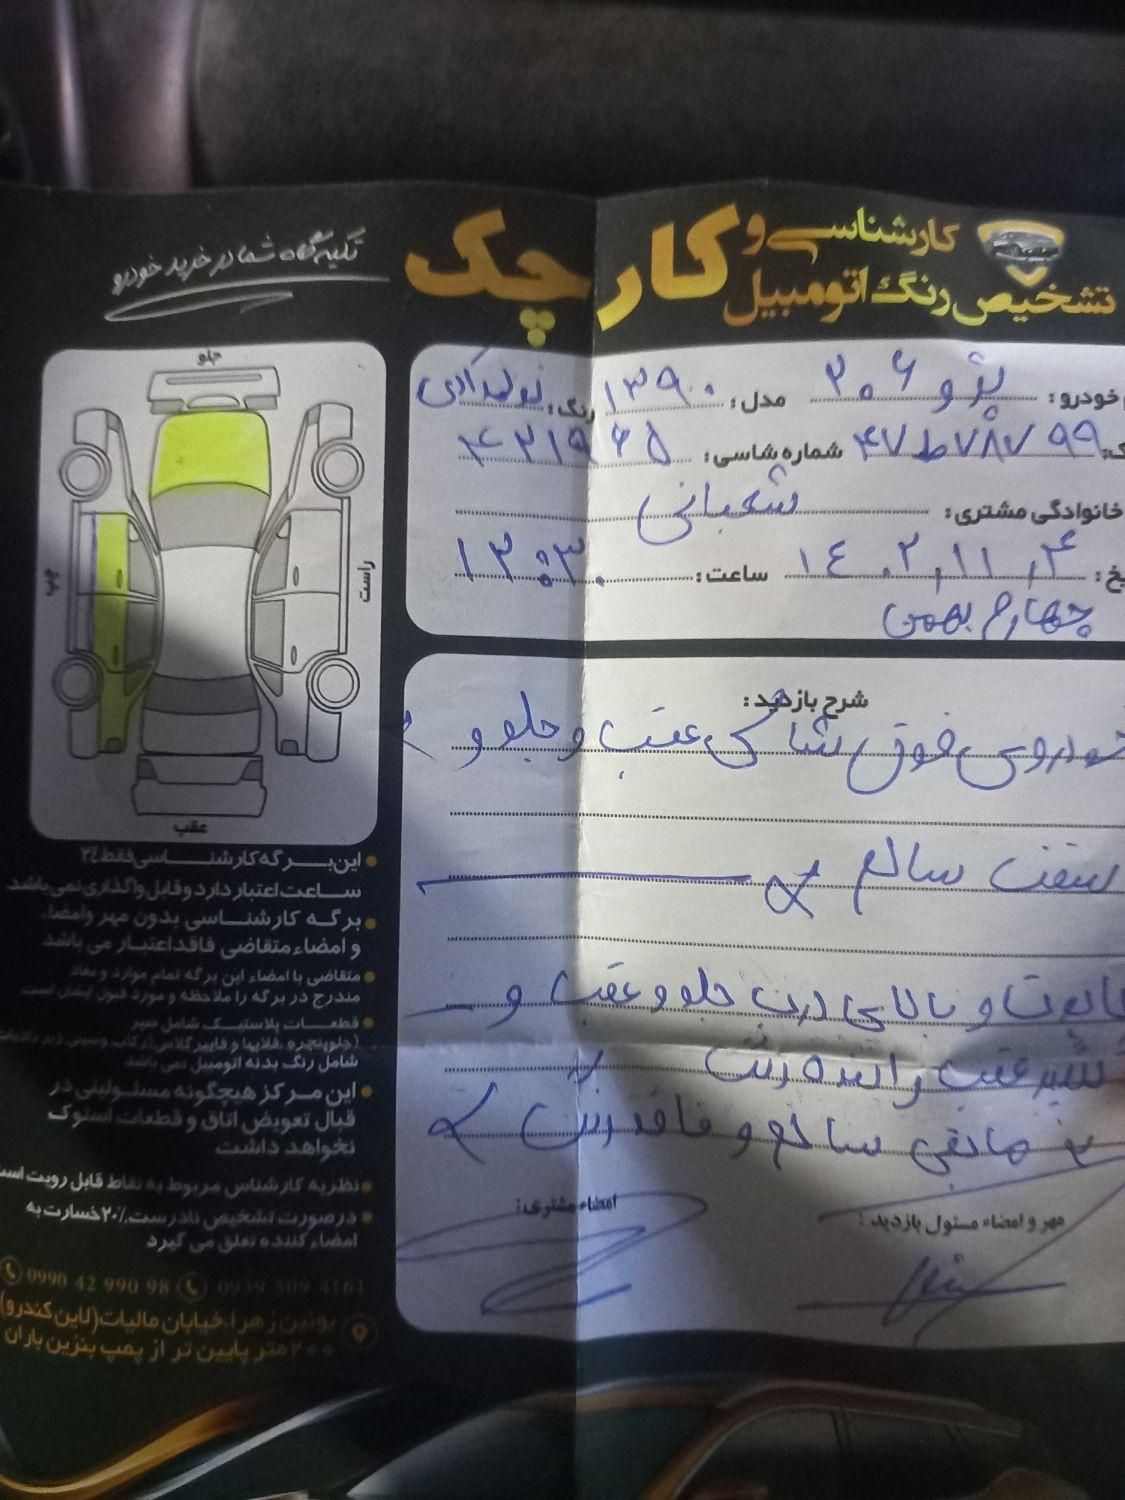 کارشناسی و
تشخیص رنگ اتومبیل
کارچک
تکیه گاه شما در خرید خودرو
خودرو: پژو ۲۰۶ مدل: ۱۳۹۰ رنگ: نوکمدادی
۹۹ ۷۸۷ط۴۷ شماره شاسی: ۴۲۱۹۶۵
خانوادگی مشتری: شعبانی
۱۴۰۲,۱۱,۴ ساعت: ۱۳:۳۰
چهارم بهمن
جلو
راست
چپ
عقب
شرح بازدید:
خودروی فوق شاسی عقب و جلو و
سقف سالم
و بالایی درب جلو و عقب و
گلگیر عقب راننده رنگ
مابقی سالم و فاقد رنگ
مهر و امضاء مسئول بازدید:
امضاء مشتری:
این برگه کارشناسی فقط ۲۴
ساعت اعتبار دارد و قابل واگذاری نمی باشد
برگه کارشناسی بدون مهر وامضاء
و امضاء متقاضی فاقد اعتبار می باشد
متقاضی با امضاء این برگه تمام موارد و مفاد
مندرج در برگه را ملاحظه و مورد قبول ایشان است
قطعات پلاستیک شامل سپر
شامل رنگ بدنه اتومبیل نمی باشد
این مرکز هیچگونه مسئولیتی در
قبال تعویض اتاق و قطعات استوک
نخواهد داشت
نظریه کارشناس مربوط به نقاط قابل رویت است
درصورت تشخیص نادرست ۲۰٪ خسارت به
امضاء کننده تعلق می گیرد
0990 42 990 98 0939 509 4161
بوئین زهرا، خیابان مالیات (لاین کندرو)
۲۰۰ متر پایین تر از پمپ بنزین باران